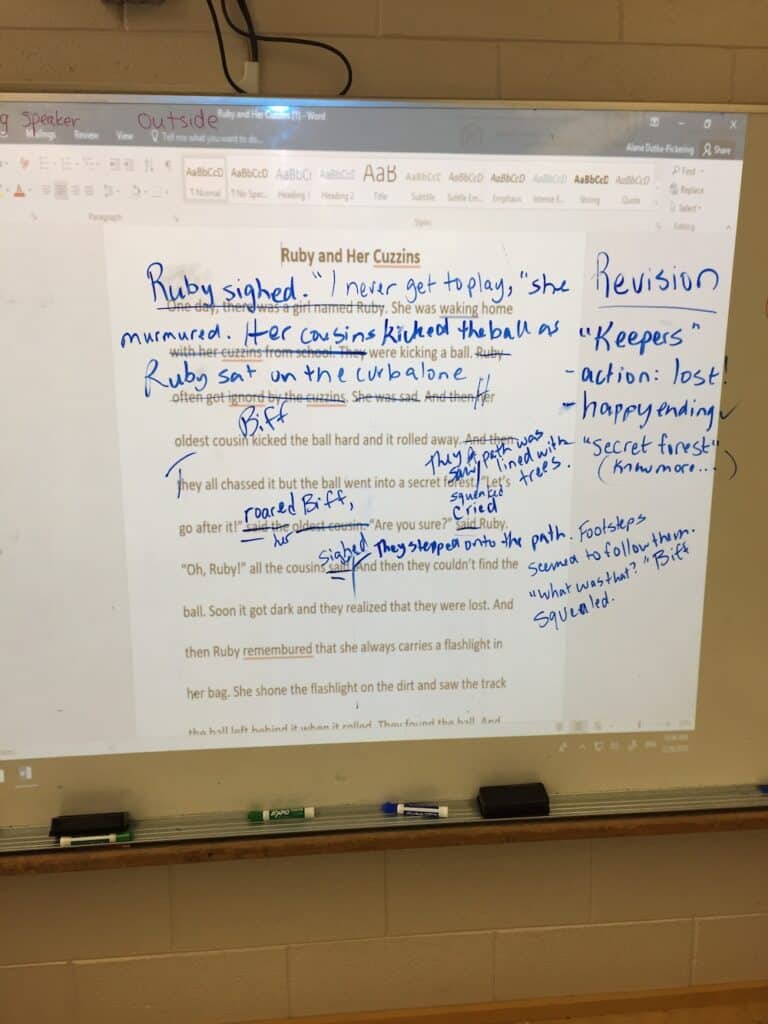 g speaker
outside
Ruby and Her Cuzzins [1] - Word
Review View Tell me what you want to do...
Alana Dutke-Pickering Share
AaBbCcD AaBbCcD AaBbCc AaBbCcD AaB AaBbCcC AaBbCcD AaBbCcD AaBbCcD AaBbCcD AaBbCcD
¶ Normal ¶ No Spac... Heading 1 Heading 2 Title Subtitle Subtle Em... Emphasis Intense E... Strong Quote
Find
Replace
Select
Paragraph
Styles
Editing
Ruby and Her Cuzzins
Ruby sighed. "I never get to play," she
One day, there was a girl named Ruby. She was waking home
murmured. Her cousins kicked the ball as
with her cuzzins from school. They were kicking a ball. Ruby
Ruby sat on the curb alone
often got ignord by the cuzzins. She was sad. And then Her
Biff
oldest cousin kicked the ball hard and it rolled away. And then
They saw
A path was
lined with
trees.
They all chassed it but the ball went into a secret forest. "Let's
roared Biff,
squeaked
cried
go after it!" said the oldest cousin. "Are you sure?" said Ruby.
her
sighed
They stepped onto the path. Footsteps
seemed to follow them.
"What was that?" Biff
squealed.
"Oh, Ruby!" all the cousins said. And then they couldn't find the
ball. Soon it got dark and they realized that they were lost. And
then Ruby remembured that she always carries a flashlight in
her bag. She shone the flashlight on the dirt and saw the track
the ball left behind it when it rolled. They found the ball. And
Revision
"Keepers"
- action: lost!
- happy ending ✓
- "secret forest"
(Know more...)